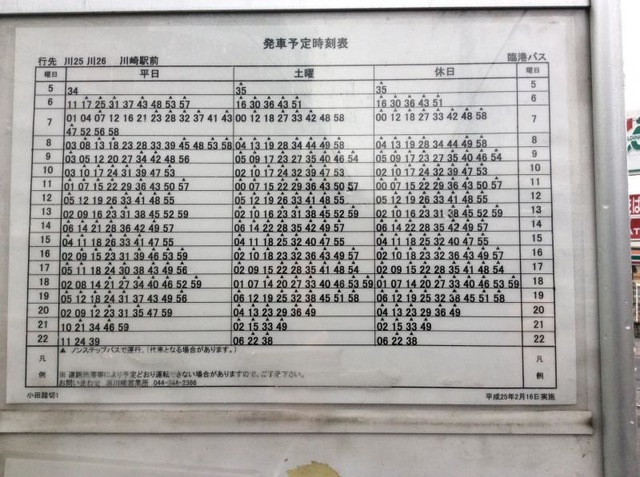 発車予定時刻表
行先 川25 川26 川崎駅前 臨港バス
曜日 平日 土曜 休日 曜日
5 34 35 35 5
6 11 17 25 31 37 43 48 53 57 16 30 36 43 51 16 30 36 43 51 6
7 01 04 07 12 16 21 23 28 32 37 41 43 00 12 18 27 33 42 48 58 00 12 18 27 33 42 48 58 7
47 52 56 58
8 03 08 13 18 23 28 33 39 45 48 53 58 04 13 19 28 34 44 49 58 04 13 19 28 34 44 49 58 8
9 03 05 12 20 27 34 42 48 56 05 09 17 23 27 35 40 46 54 05 09 17 23 27 35 40 46 54 9
10 03 10 17 24 31 39 47 53 02 10 17 24 32 39 47 53 02 10 17 24 32 39 47 53 10
11 01 07 15 22 29 36 43 50 57 00 07 15 22 29 36 43 50 57 00 07 15 22 29 36 43 50 57 11
12 05 12 19 26 33 41 48 55 05 12 19 26 33 41 48 55 05 12 19 26 33 41 48 55 12
13 02 09 16 23 31 38 45 52 59 02 10 16 23 31 38 45 52 59 02 10 16 23 31 38 45 52 59 13
14 06 14 21 28 36 42 49 57 06 14 21 28 35 42 49 57 06 14 21 28 35 42 49 57 14
15 04 11 18 26 33 41 47 55 04 11 18 25 32 40 47 55 04 11 18 25 32 40 47 55 15
16 02 09 15 23 31 39 46 53 59 02 10 18 25 33 36 43 49 57 02 10 18 25 33 36 43 49 57 16
17 05 11 18 24 30 38 43 49 56 02 09 15 22 28 35 41 48 54 02 09 15 22 28 35 41 48 54 17
18 02 08 14 21 27 34 40 46 52 59 01 07 14 20 27 33 40 46 53 59 01 07 14 20 27 33 40 46 53 59 18
19 05 12 18 24 31 37 43 49 56 06 12 19 25 32 38 45 51 58 06 12 19 25 32 38 45 51 58 19
20 02 09 12 23 31 35 47 59 04 13 23 29 36 49 04 13 23 29 36 49 20
21 10 21 34 46 59 02 15 33 49 02 15 33 49 21
22 11 24 39 06 22 38 06 22 38 22
凡例 ▲ ノンステップバスで運行。(代車となる場合があります。)
※ 道路渋滞等により予定どおり運転できない場合がありますので、ご了承下さい。
お問い合わせ 浜川崎営業所 044-344-2386
小田踏切1 平成25年2月16日実施